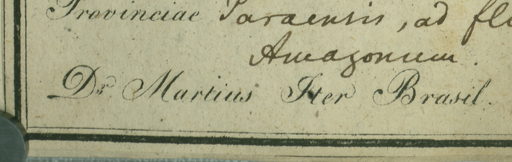 Provinciae Paraensis, ad
Amazonum.
Dr. Martius Iter Brasil.